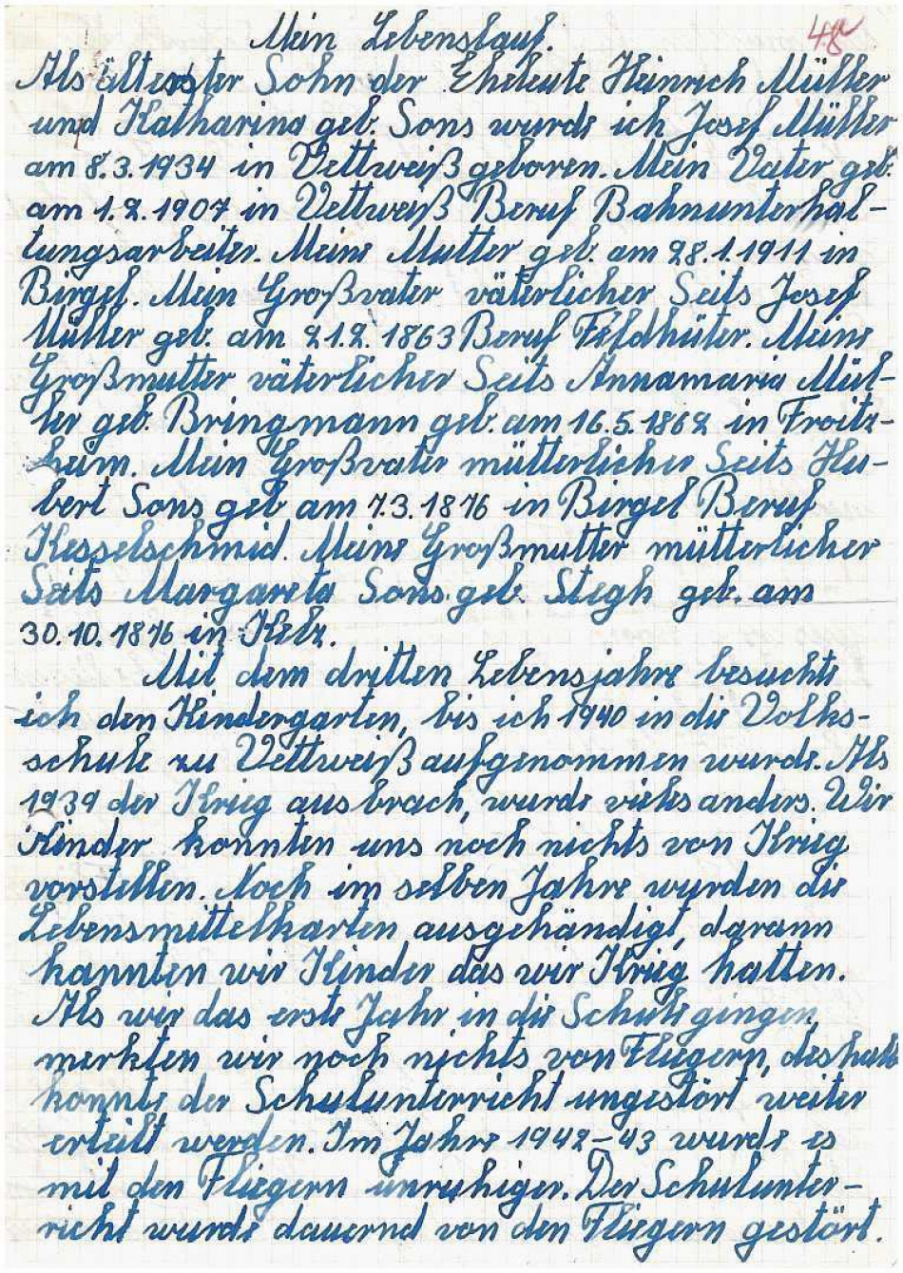 Mein Lebenslauf. 48
Als ältester Sohn der Eheleute Heinrich Müller
und Katharina geb. Sons wurde ich Josef Müller
am 8.3.1934 in Vettweiß geboren. Mein Vater geb.
am 1.2.1907 in Vettweiß Beruf Bahnunterhal-
tungsarbeiter. Meine Mutter geb. am 28.1.1911 in
Birgel. Mein Großvater väterlicher Seits Josef
Müller geb. am 21.2.1863 Beruf Feldhüter. Meine
Großmutter väterlicher Seits Annamaria Mül-
ler geb. Bringmann geb. am 16.5.1862 in Froitz-
heim. Mein Großvater mütterlicher Seits Hu-
bert Sons geb am 7.3.1876 in Birgel Beruf
Kesselschmid. Meine Großmutter mütterlicher
Seits Margareta Sons geb. Stegh geb. am
30.10.1876 in Kelz.
Mit dem dritten Lebensjahre besuchte
ich den Kindergarten, bis ich 1940 in die Volks-
schule zu Vettweiß aufgenommen wurde. Als
1939 der Krieg aus brach, wurde vieles anders. Wir
Kinder konnten uns noch nichts von Krieg
vorstellen. Noch im selben Jahre wurden die
Lebensmittelkarten ausgehändigt, darann
kannten wir Kinder das wir Krieg hatten.
Als wir das erste Jahr in die Schule gingen
merkten wir noch nichts von Fliegern, deshalb
konnte der Schulunterricht ungestört weiter
erteilt werden. Im Jahre 1942-43 wurde es
mit den Fliegern unruhiger. Der Schulunter-
richt wurde dauernd von den Fliegern gestört.